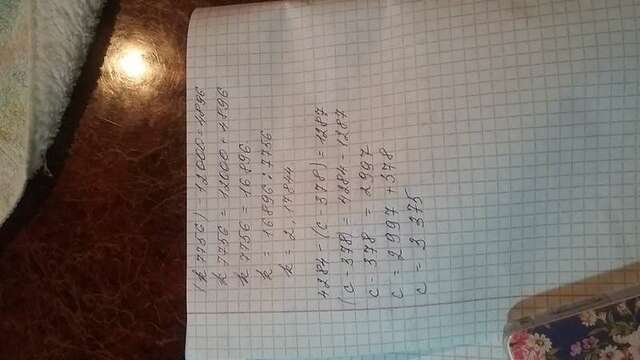 (k 7756) - 12000 = 4896
k 7756 = 12000 + 4896
k 7756 = 16896
k = 16896 : 7756
k = 2,17844
4284 - (c - 378) = 1287
(c - 378) = 4284 - 1287
c - 378 = 2997
c = 2997 + 378
c = 3 375